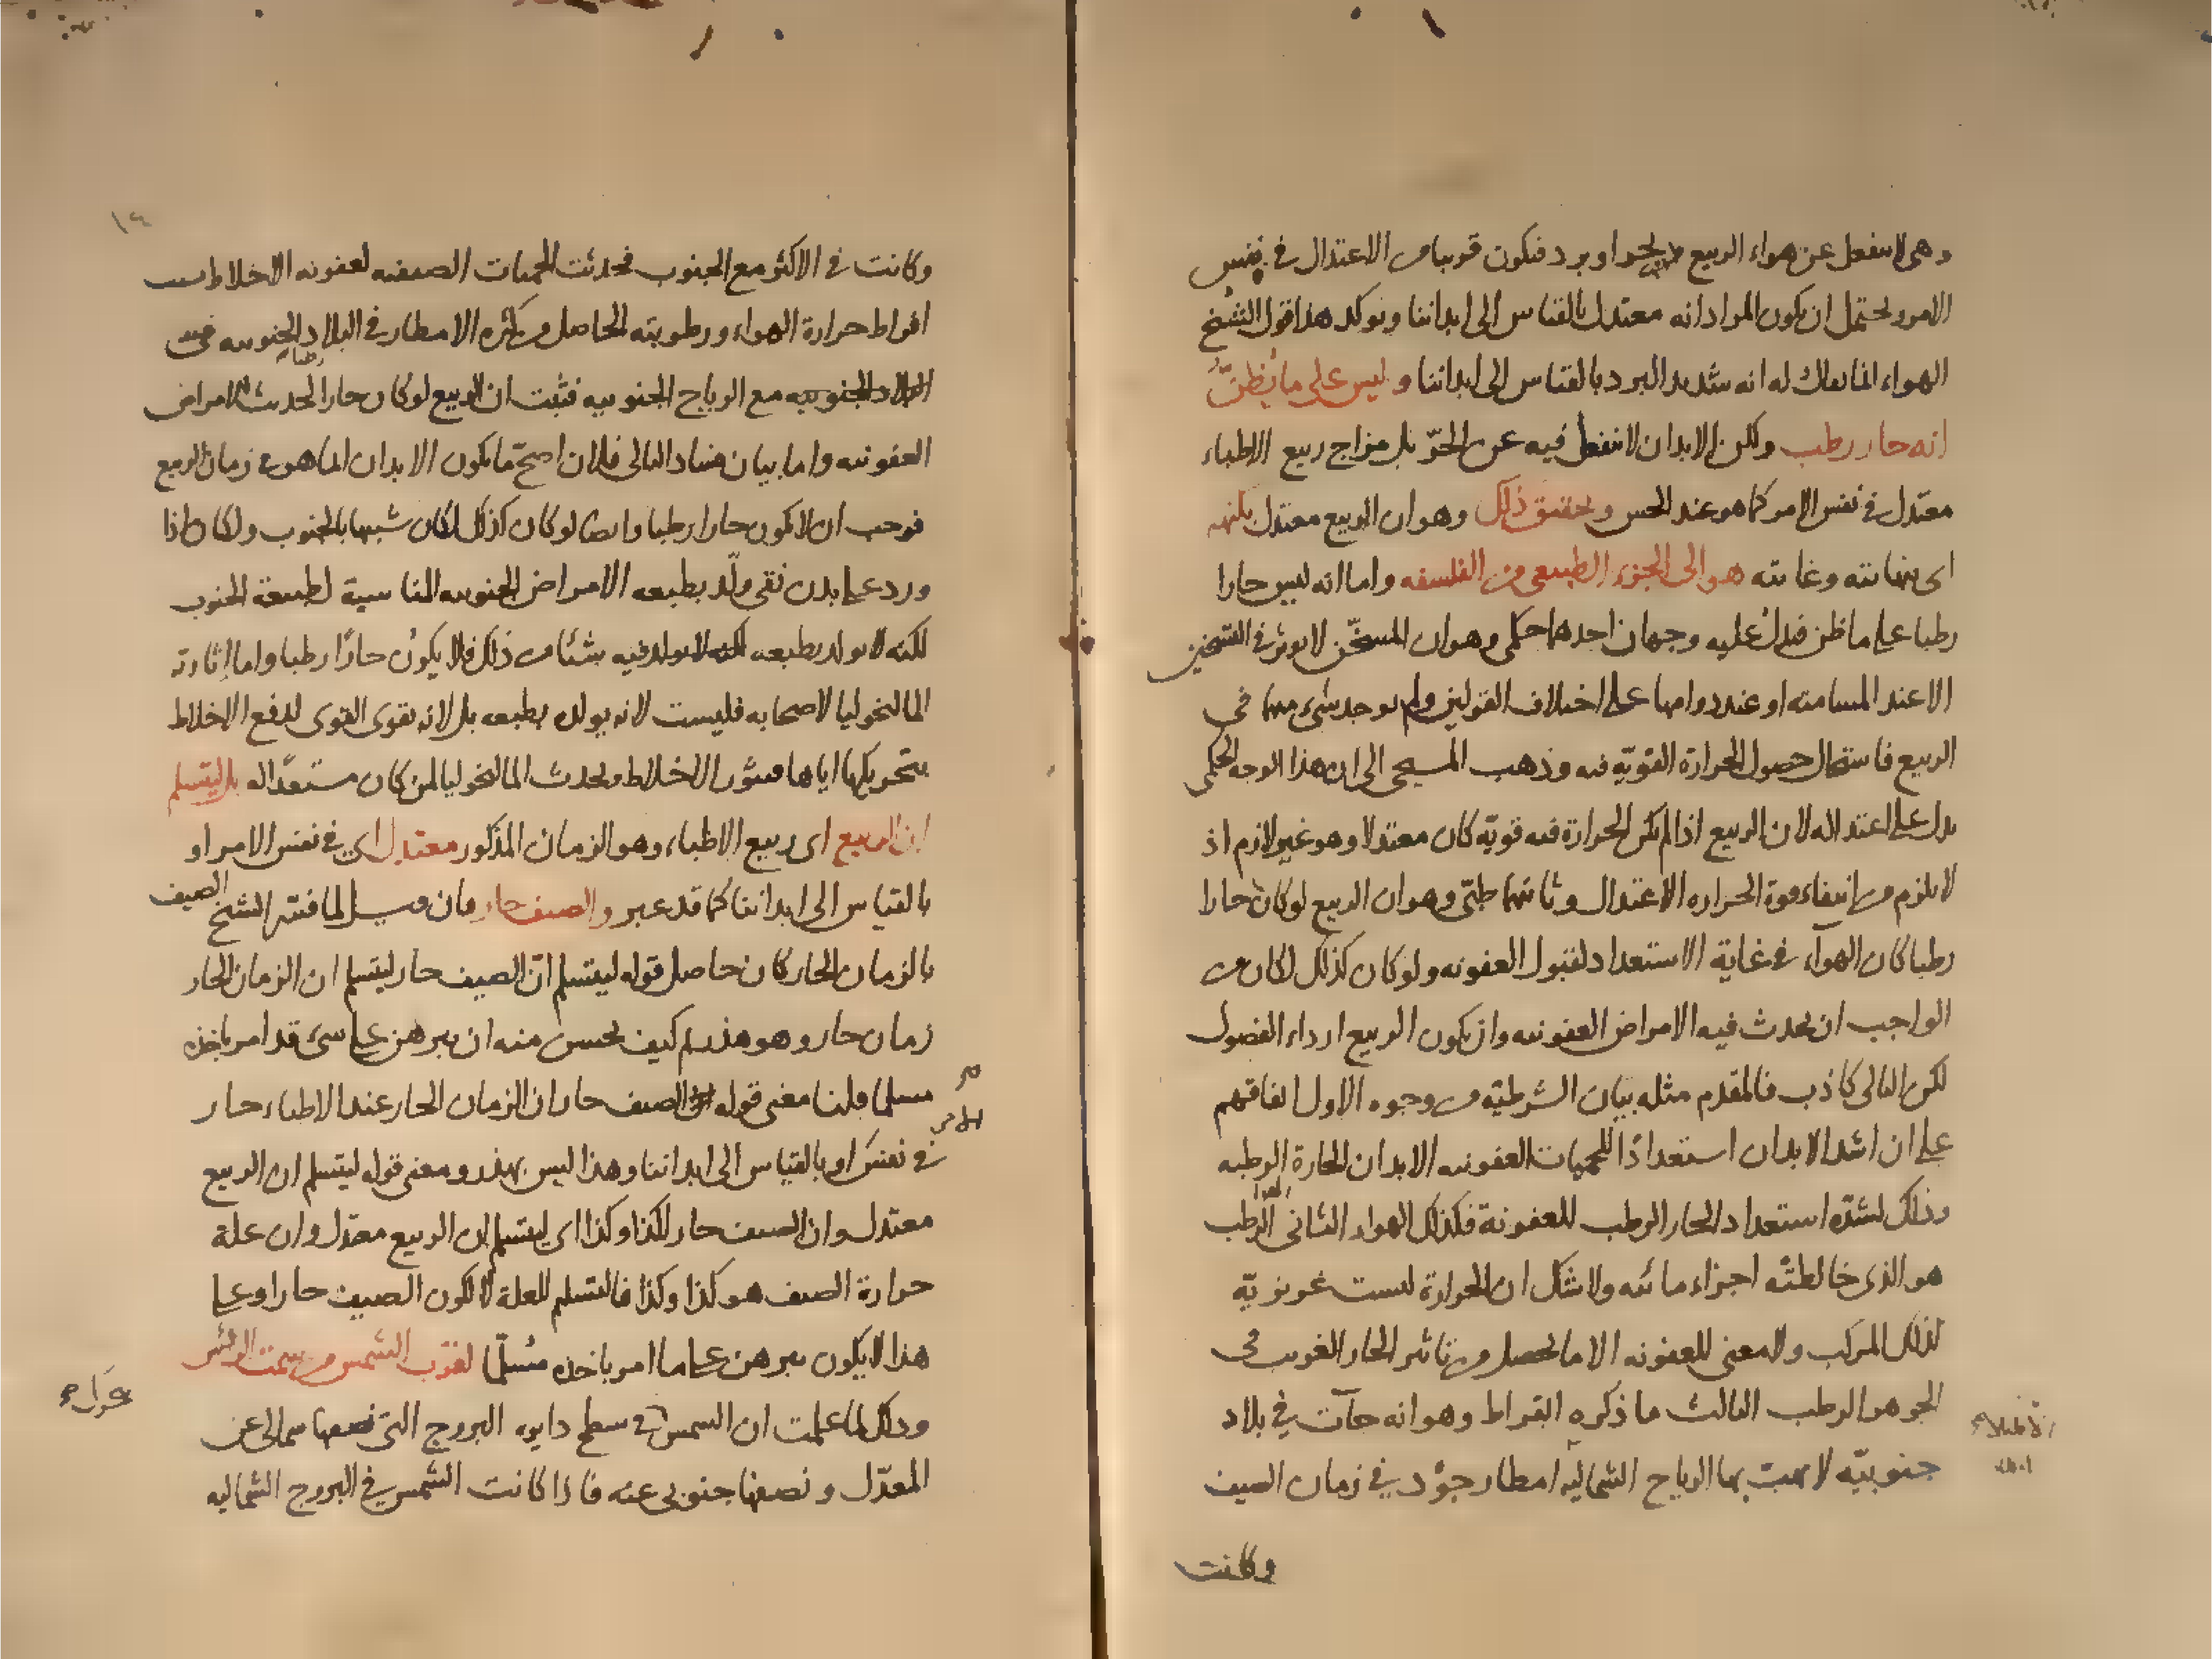 وهى لا ينفعل عن هواء الربيع بحر او برد فيكون قريبا من الاعتدال فى نفس
الامر ويحتمل ان يكون المراد انه معتدل بالقياس الى ابداننا ويوكد هذا قول الشيخ
الهواء انما يقال له انه شديد البرد بالقياس الى ابداننا وليس على ما يُظنّ
انه حار رطب ولكن الابدان لا تنفعل فيه عن الحرّ بل مزاج ربيع الاطباء
معتدل فى نفس الامر كما هو عند الحس وتحقيق ذلك وهو ان الربيع معتدل بكنهه
اى بنهايته وغايته هو الى الجزء الطبيعى من الفلسفه واما انه ليس حارا
رطبا على ما ظن فيدل عليه وجهان احدهما حكمى وهو ان المسخّن لا يوثر فى التسخين
الا عند المسامته او عند دوامها على اختلاف القولين ولم يوجد شىء منها فى
الربيع فاستحال حصول الحرارة القويّه فيه وذهب المسيحى الى ان هذا الوجه الحكمى
يدل على اعتداله لان الربيع اذا لم يكن الحرارة فيه قويّه كان معتدلا وهو غير لازم اذ
لا يلزم من انتفاء قوة الحراره الاعتدال وثانيهما طبّى وهو ان الربيع لو كان حارا
رطبا كان الهواء فى غاية الاستعداد لقبول العفونه ولو كان كذلك لكان من
الواجب ان يحدث فيه الامراض العفونيه وان يكون الربيع ارداء الفصول
لكن التالى كاذب فالمقدم مثله بيان الشرطيّه من وجوه الاول اتفاقهم
على ان اشد الابدان استعدادًا للحميات العفونيه الابدان الحارة الرطبه
وذلك لشدّه استعداد الحار الرطب للعفونة فكذلك الهواء الثانى الهواء الرطب
هو الذى خالطتْه اجزاء مائيه ولا شك ان الحرارة ليست غريزيّه
لذلك المركب ولا معنى للعفونه الا ما يحصل من تاثير الحار الغريب فى
الجوهر الرطب الثالث ما ذكره ابقراط وهو انه جآت فى بلاد
جنوبيّه لا تهبّ بها الرياح الشماليه امطار جوْد فى زمان الصيف
وكانت
وكانت فى الاكثر مع الجنوب فحدثت الحميات الصيفيه لعفونه الاخلاط بسبب
افراط حرارة الهواء ورطوبته الحاصل من كثره الامطار فى البلاد الجنوبيه
البلاد الجنوبيه مع الرياح الجنوبيه فثبت ان الربيع لو كان حارا رطبا لحدثت الامراض
العفونيه واما بيان فساد التالى فلان اصحّ ما يكون الابدان انما هو فى زمان الربيع
فوجب ان لا يكون حارا رطبا وايضا لو كان كذلك لكان شبيها بالجنوب ولكان اذا
ورد على بدن نقى ولّد بطبعه الامراض الجنوبيه المناسبة لطبيعة الجنوب
لكنه لا يولد بطبعه لكنه لا يولد فيه شيئا من ذلك فلا يكونُ حارًا رطبا واما اثارته
المالنخوليا لاصحابه فليست لانه يولده بطبعه بل لانه يقوى القوى لدفع الاخلاط
بتحريكها اياها فيثور الاخلاط ويحدث المالنخوليا لمن كان مستعدّا له بل ليتسلم
ان الربيع اى ربيع الاطباء وهو الزمان المذكور معتدل اى فى نفس الامر او
بالقياس الى ابداننا كما قد عبر والصيف حار فان قيل لما فسّر الشيخ الصيف
بالزمان الحار كان حاصل قوله ليتسلم انّ الصيف حار ليتسلم ان الزمان الحار
زمان حار وهو هذر ثم كيف يحسن منه ان يبرهن على شىء قد امر باخذه
مسلما قلنا معنى قوله الصيف حار ان الزمان الحار عند الاطباء حار
فى نفس الامر او بالقياس الى ابداننا وهذا ليس بهذر ومعنى قوله ليتسلم ان الربيع
معتدل وان الصيف حار لكذا وكذا اى ليتسلم ان الربيع معتدل وان علة
حرارة الصيف هو كذا وكذا فالتسلم للعلة لا لكون الصيف حارا وعلى
هذا لا يكون يبرهن على ما امر باخذه مُسَلّما لقرب الشمس من سمت الرأس
وذلك لما علمت ان الشمس فى سطح دايره البروج التى نصفها شمالى عن
المعدّل ونصفها جنوبى عنه فاذا كانت الشمس فى البروج الشماليه